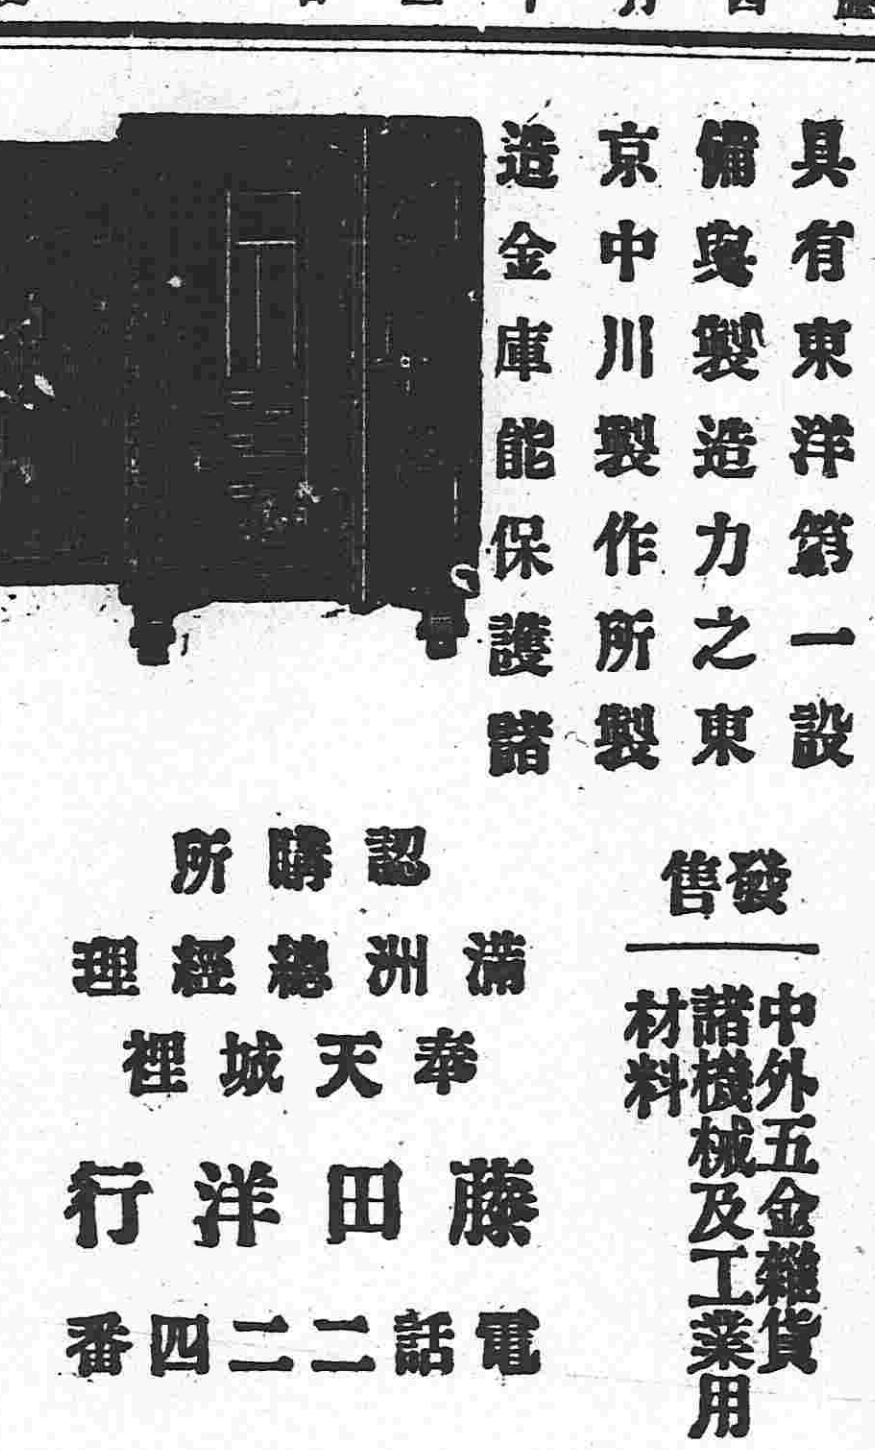 具有東洋第一設
備與製造力之東
京中川製作所製
造金庫能保護諸
發售
中外五金雜貨
諸機械及工業用
材料
認購所
滿洲總經理
奉天城裡
藤田洋行
電話二二四番